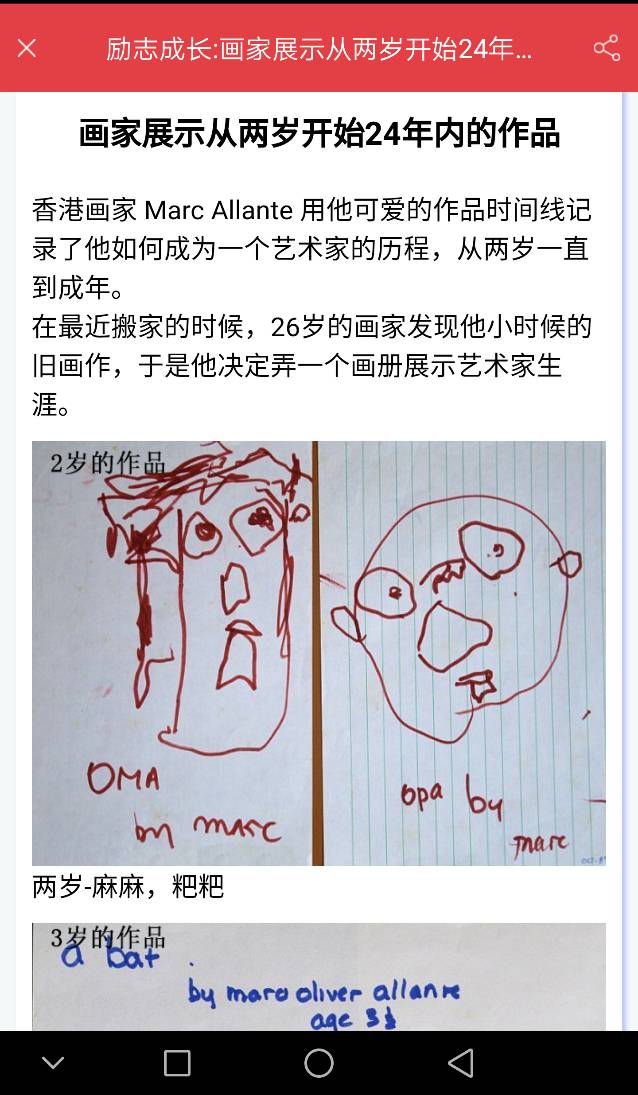 励志成长:画家展示从两岁开始24年...
画家展示从两岁开始24年内的作品
香港画家 Marc Allante 用他可爱的作品时间线记
录了他如何成为一个艺术家的历程，从两岁一直
到成年。
在最近搬家的时候，26岁的画家发现他小时候的
旧画作，于是他决定弄一个画册展示艺术家生
涯。
2岁的作品
OMA
by marc
opa by
marc
两岁-麻麻，粑粑
3岁的作品
a bat
by marc oliver allante
age 3½